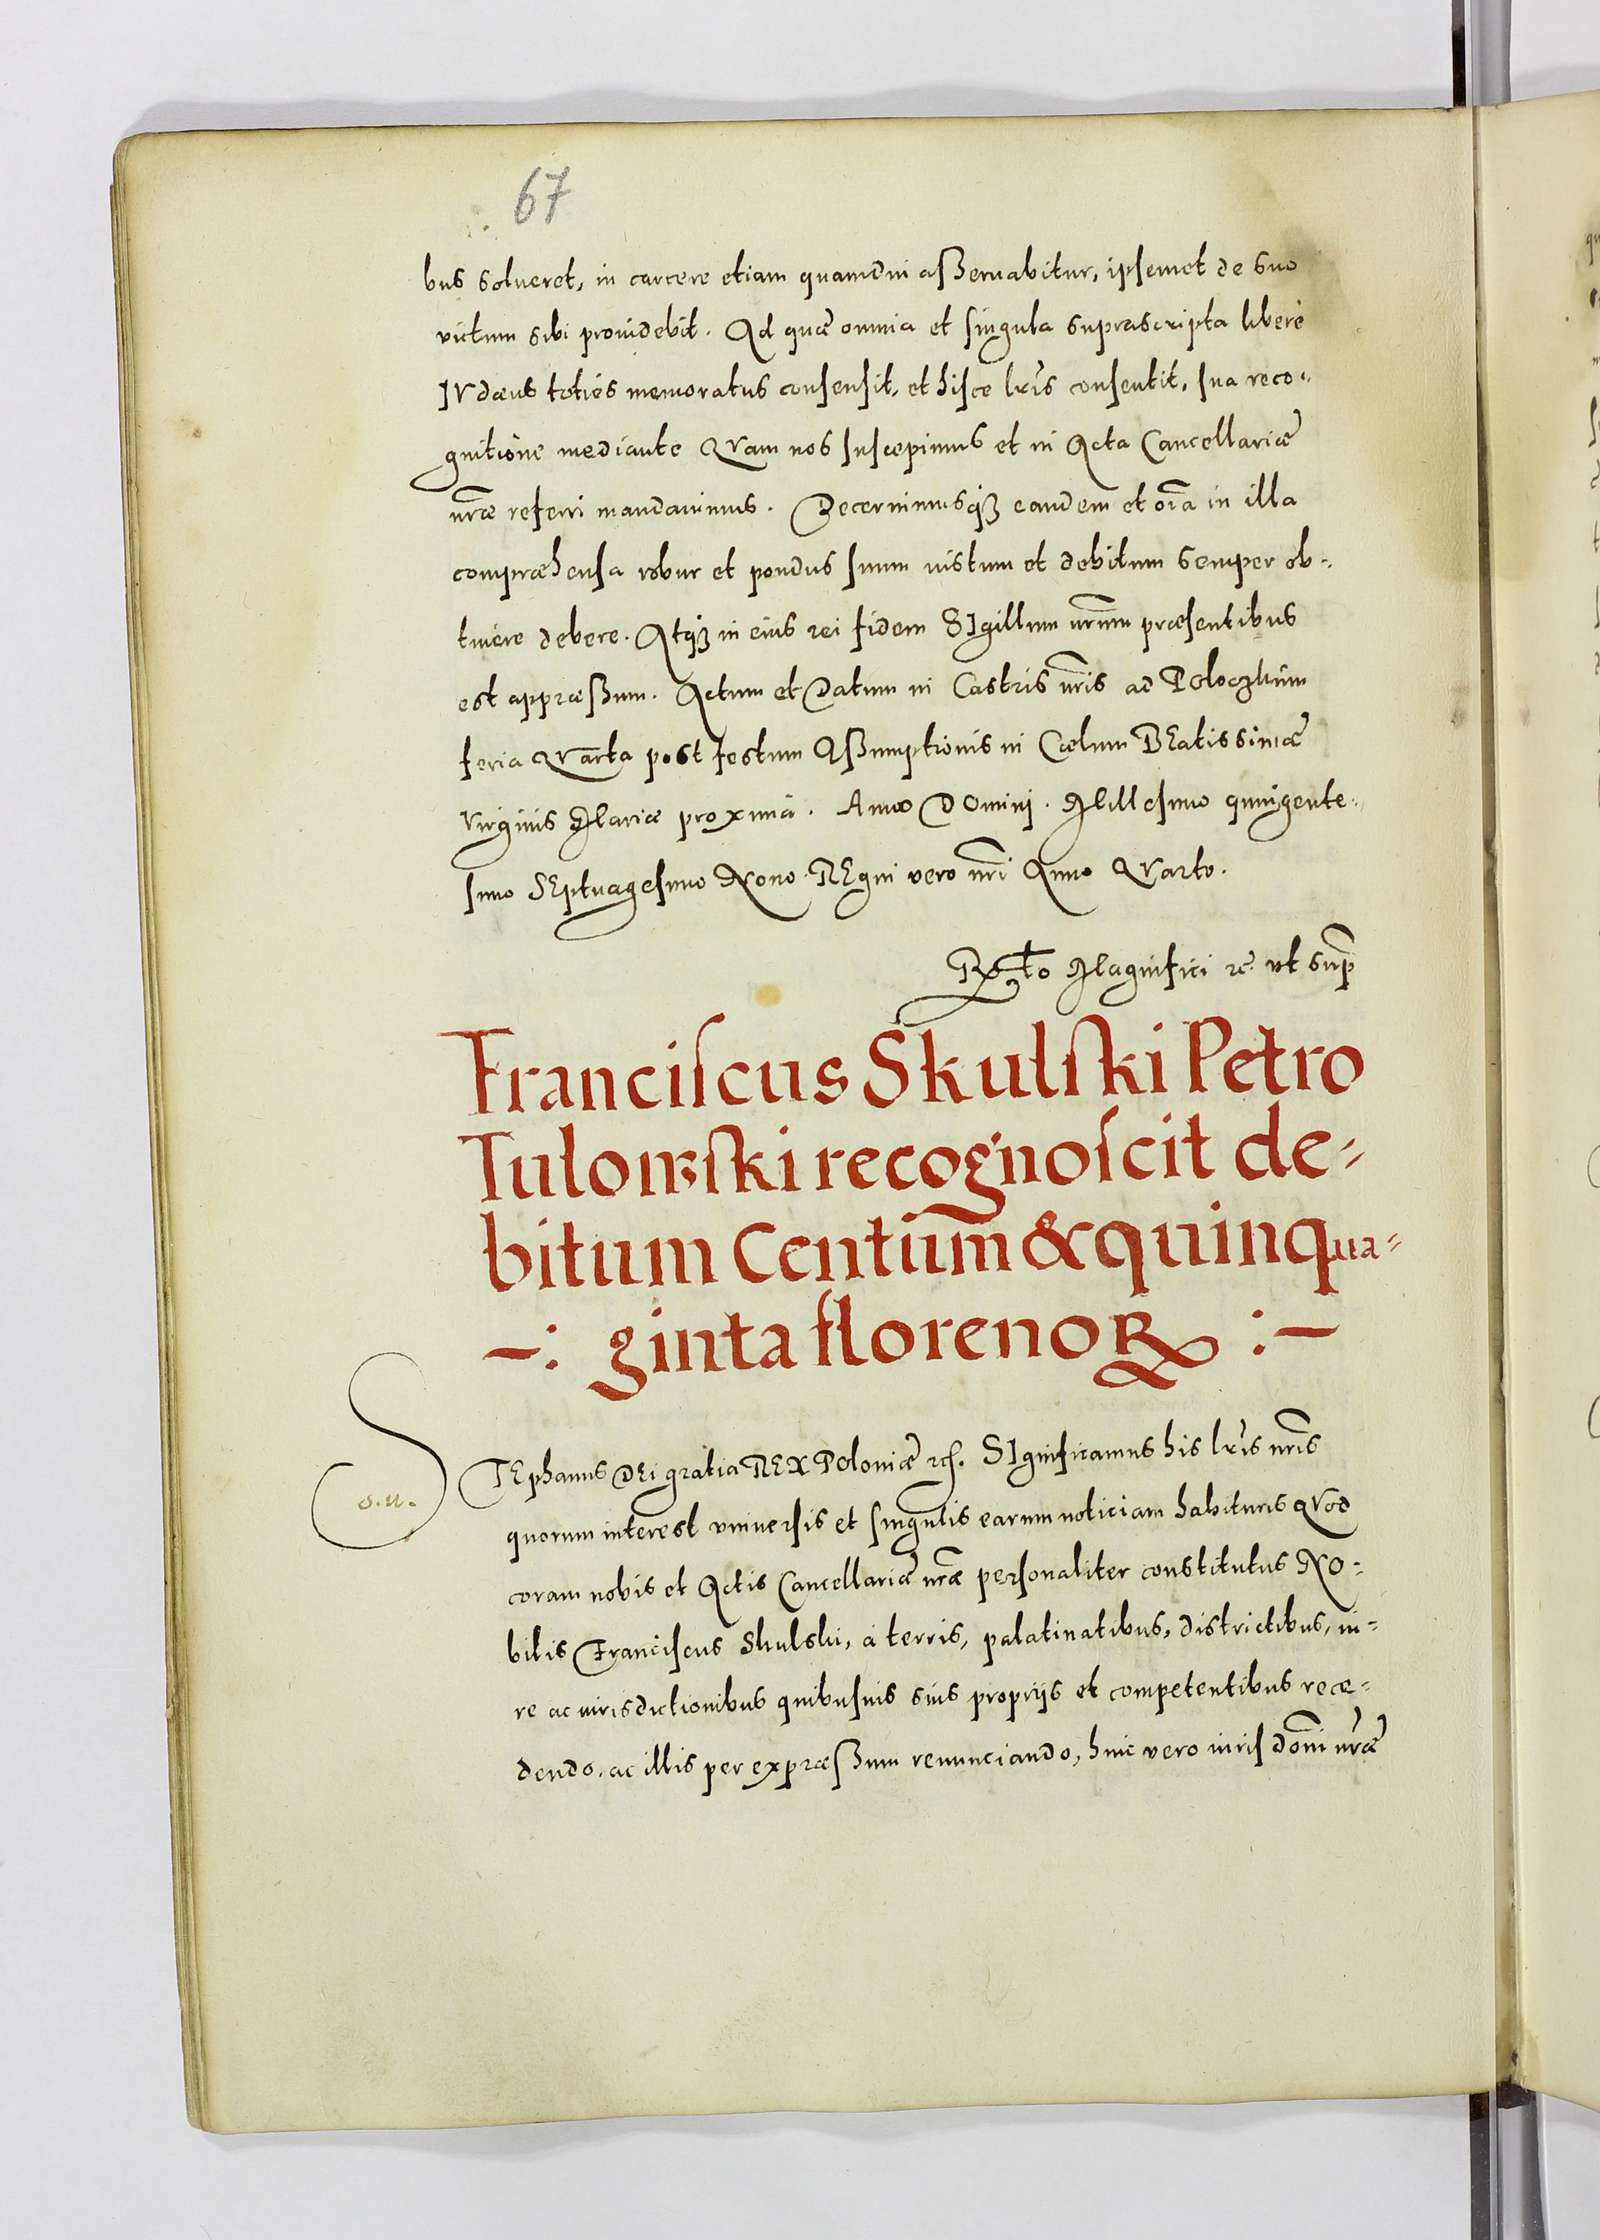 67
bus solueret, in carcere etiam quamdiu aßeruabitur, ipsemet de suo
victum sibi prouidebit. Ad quæ omnia et singula suprascripta liberè
IVdæus toties memoratus consensit, et hisce lr̃is consentit, sua reco-
gnitione mediante QVam nos suscepimus et in Acta Cancellariæ
nr̃æ referri mandauimus. Decernimusqꝫ eandem et oĩa in illa
compræhensa robur et pondus suum iustum et debitum semper ob-
tinere debere. Atqꝫ in eius rei fidem SIgillum nr̃um præsentibus
est appræßum. Actum et Datum in Castris nr̃is ad POloczkum
feria QVarta post festum Aßumptionis in Cælum BEatissimæ
Virginis Mariæ proxima. Anno DOmini. Millesimo quingente-
simo SEptuagesimo Nono REgni vero nr̃i Anno QVarto.
Rꝫto Magnifici ꝛc̃ vt sup̃
Franciscus Skulski Petro
Tulowski recognoscit de-
bitum Centum & quinqua-
-: ginta florenoꝝ :-
STEphanus DEi gratia REX POloniæ ꝛcꝭ. SIgnificamus his lr̃is nr̃is
o.u.
quorum interest vniuersis et singulis earum noticiam habituris QVod
coram nobis et Actis Cancellariæ nr̃æ personaliter constitutus NO-
bilis Franciscus Skulski, à terris, palatinatibus, districtibus, iu-
re ac iurisdictionibus quibusuis suis proprijs et competentibus rece-
dendo, ac illis per expræßum renunciando, huic vero iurisdoñi nr̃æ